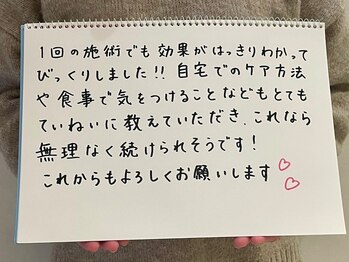 1回の施術でも効果がはっきりわかって
びっくりしました!! 自宅でのケア方法
や食事で気をつけることなどもとても
ていねいに教えていただき、これなら
無理なく続けられそうです!
これからもよろしくお願いします♡♡